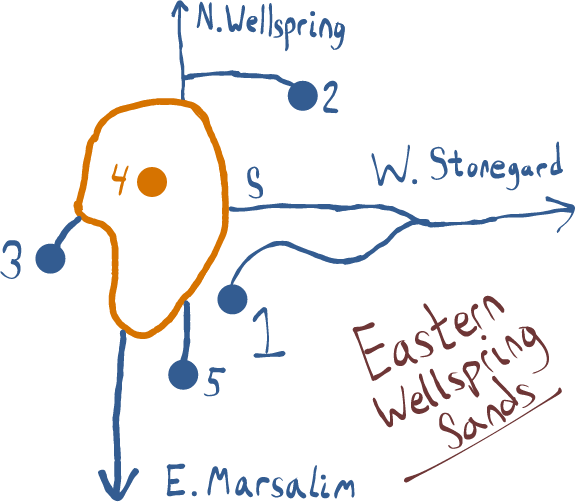 N. Wellspring
2
4
S
W. Stonegard
3
1
5
Eastern
Wellspring
Sands
E. Marsalim